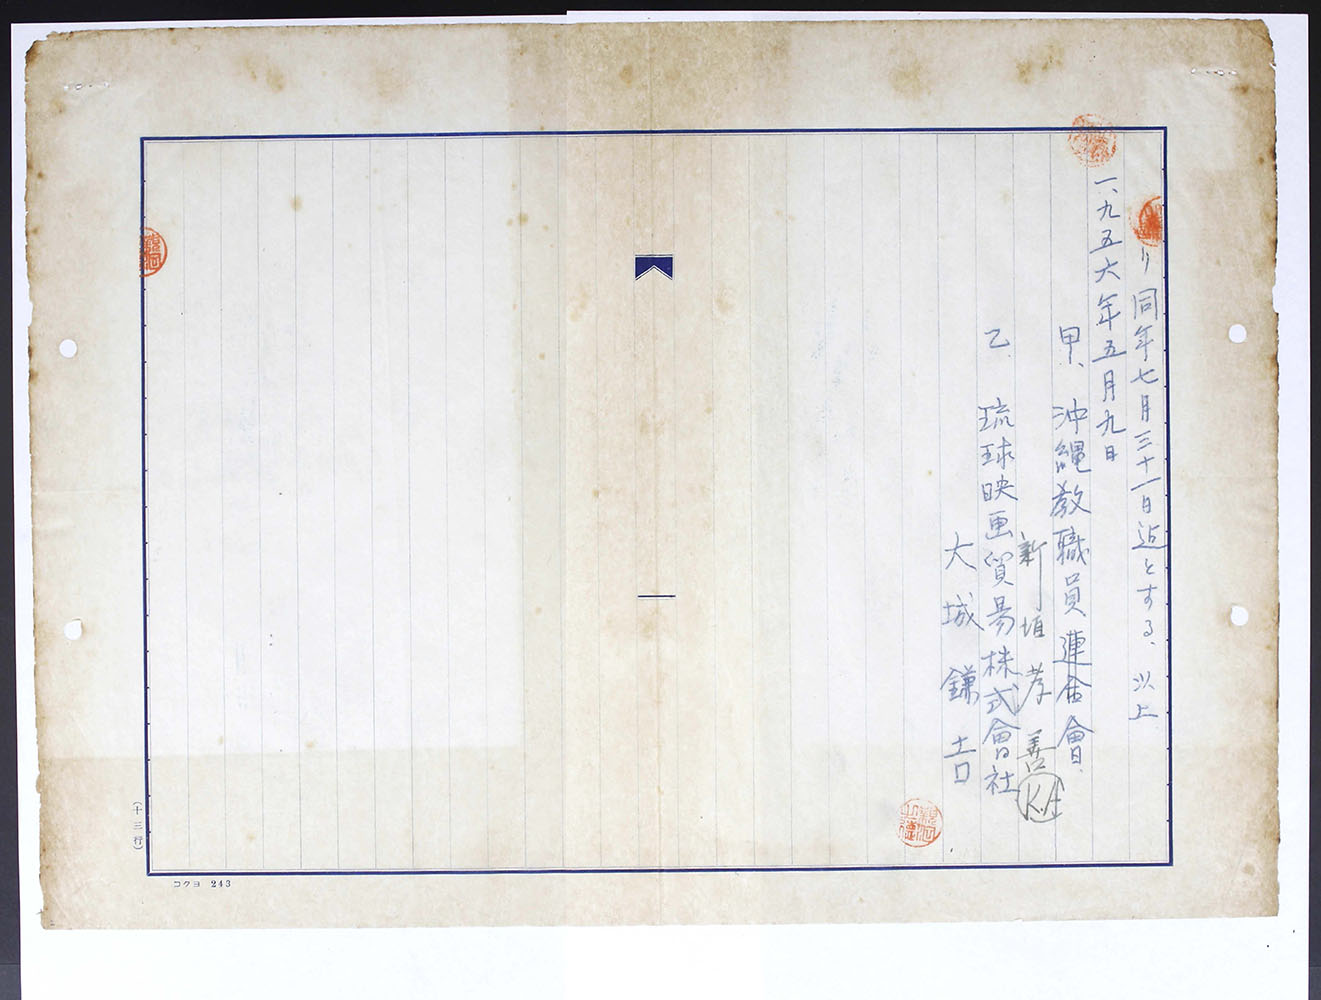 り同年七月三十一日迄とする、以上
一、九五六年五月九日
甲、沖縄教職員連合會
新垣孝善
K.A
乙 琉球映画貿易株式會社
大城鎌吉
(十三行)
コクヨ 243